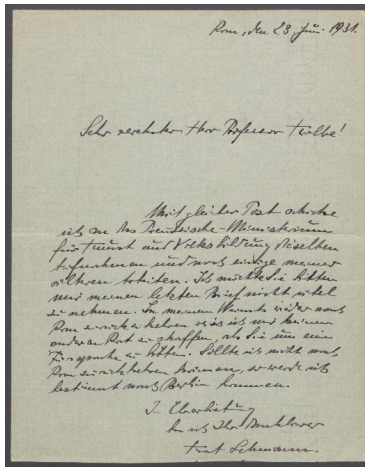 Rom, den 23 Juni. 1931.
Sehr verehrter Herr Professor Kolbe!
Mit gleicher Post schicke
ich an das Preussische-Ministerium
für Kunst und Volksbildung dieselben
Aufnahmen und noch einige meiner
älteren Arbeiten. Ich möchte Sie bitten
mir meinen letzten Brief nicht übel
zu nehmen. In meinem Wunsch wieder nach
Rom zurückzukehren weiss ich mir keinen
anderen Rat zu schaffen, als Sie um eine
Fürsprache zu bitten. Sollte ich nicht nach
Rom zurückkehren können, so werde ich
bestimmt nach Berlin kommen.
In Ehrerbietung
bin ich Ihr dankbarer
Kurt Lehmann.